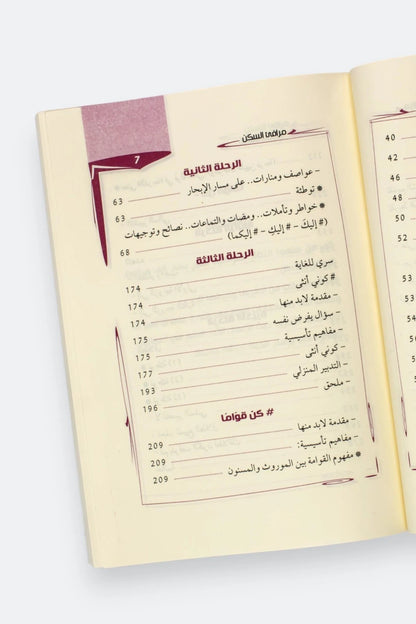 مرافئ السكن
7
الرحلة الثانية
- عواصف ومنارات.. على مسار الإبحار 63
* توطئة 63
* خواطر وتأملات.. ومضات والتماعات.. نصائح وتوجيهات
(# إليكَ - # إليكِ - # إليكما) 68
الرحلة الثالثة
سري للغاية 174
# كوني أنثى 174
- مقدمة لابد منها 174
- سؤال يفرض نفسه 175
- مفاهيم تأسيسية 175
- كوني أنثى 177
- التدبير المنزلي 193
- ملحق 196
# كن قوّامًا
- مقدمة لابد منها 209
- مفاهيم تأسيسية: 209
* مفهوم القوامة بين الموروث والمسنون 209
40
42
46
48
50
52
52